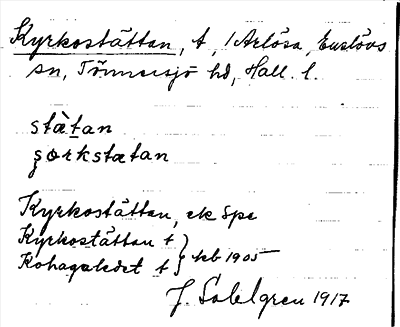 Kyrkostättan, t, 1 Årlösa, Enslövs
sn, Tönnersjö hd, Hall. l.
stàtan
şorkstatan
Kyrkostättan, ek Spe
Kyrkostättan t
Kohagaledet t } kb 1905
J. Sahlgren 1917